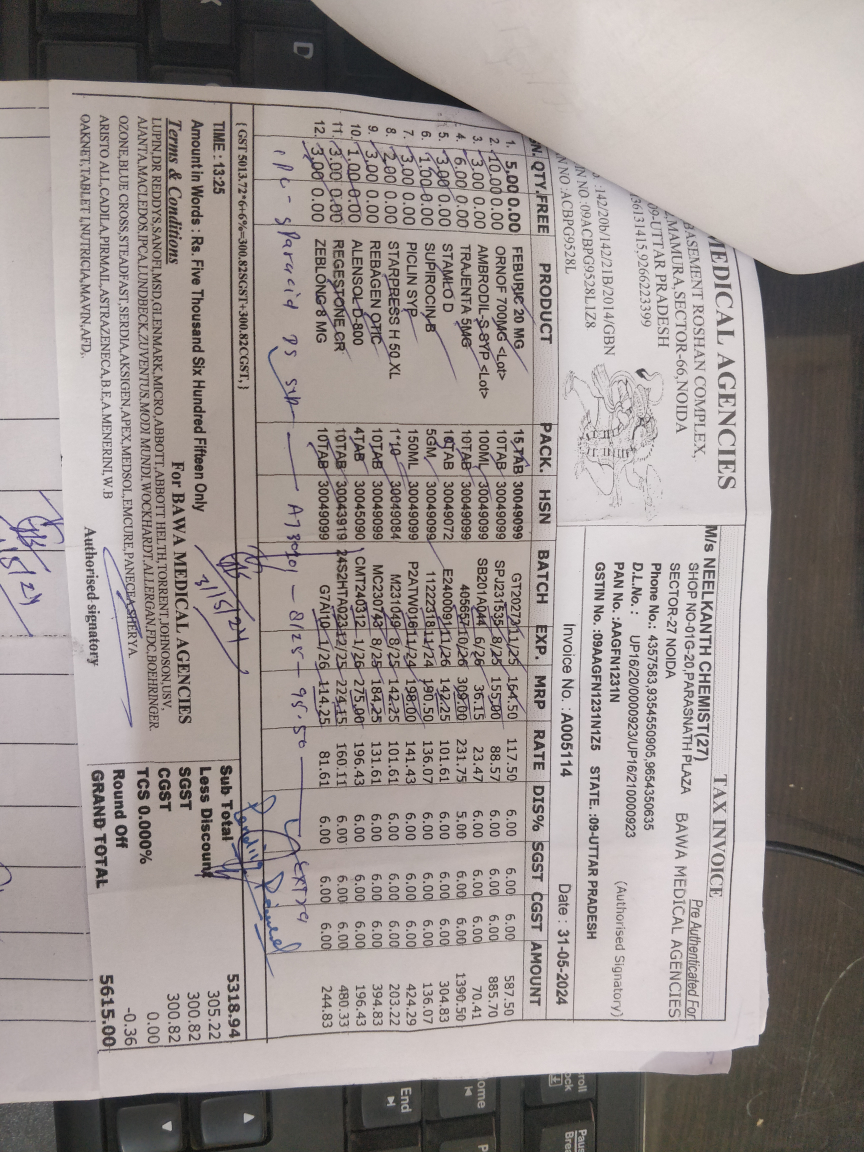 MEDICAL AGENCIES
BASEMENT ROSHAN COMPLEX,
MAMURA,SECTOR-66,NOIDA
09-UTTAR PRADESH
36131415,9266223399
:142/20b/142/21B/2014/GBN
IN NO :09ACBPG9528L1Z8
N NO :ACBPG9528L
TAX INVOICE
Pre Authenticated For
M/s NEELKANTH CHEMIST(27)
BAWA MEDICAL AGENCIES
SHOP NO-01G-20,PARASNATH PLAZA
SECTOR-27 NOIDA
Phone No.: 4357583,9354550905,9654350635
D.L.No.: UP16/20/0000923/UP16/210000923
PAN No. :AAGFN1231N
(Authorised Signatory)
GSTIN No. :09AAGFN1231N1Z5 STATE. :09-UTTAR PRADESH
Invoice No. : A005114 Date : 31-05-2024
N. QTY.FREE PRODUCT PACK. HSN BATCH EXP. MRP RATE DIS% SGST CGST AMOUNT
1. 5.00 0.00 FEBURIC 20 MG 15 TAB 30049099 GT20273 11/25 164.50 117.50 6.00 6.00 587.50
2. 10.00 0.00 ORNOF 700MG <Lot> 10TAB 30049099 SPJ231535 8/25 155.00 88.57 6.00 6.00 6.00 885.70
3. 3.00 0.00 AMBRODIL-S SYP <Lot> 100ML 30049099 SB201A044 6/26 36.15 23.47 6.00 6.00 6.00 70.41
4. 6.00 0.00 TRAJENTA 5MG 10TAB 30049099 405657 10/26 309.00 231.75 5.00 6.00 6.00 1390.50
5. 3.00 0.00 STAMLO D 10TAB 30049072 E2400091 11/26 142.25 101.61 6.00 6.00 6.00 304.83
6. 1.00 0.00 SUPIROCIN-B 5GM 30049099 11222318 11/24 190.50 136.07 6.00 6.00 6.00 136.07
7. 3.00 0.00 PICLIN SYP 150ML 30049099 P2ATW018 11/24 198.00 141.43 6.00 6.00 6.00 424.29
8. 2.00 0.00 STARPRESS H 50 XL 1*10 30049084 M231049 8/25 142.25 101.61 6.00 6.00 6.00 203.22
9. 3.00 0.00 REBAGEN OTIC 10TAB 30049099 MC230743 8/25 184.25 131.61 6.00 6.00 6.00 394.83
10. 1.00 0.00 ALENSOL D-800 4TAB 30045090 CMT240312 1/26 275.00 196.43 6.00 6.00 6.00 196.43
11. 3.00 0.00 REGESTONE CR 10TAB 30043919 24S2HTA023 12/25 224.15 160.11 6.00 6.00 6.00 480.33
12. 3.00 0.00 ZEBLONG 8 MG 10TAB 30049099 G7AI10 1/26 114.25 81.61 6.00 6.00 6.00 244.83
8/25 - 95.50
Extra
{ GST 5013.72*6+6%=300.82SGST+300.82CGST,}
Sub Total 5318.94
Less Discount 305.22
SGST 300.82
CGST 300.82
TCS 0.000% 0.00
Round Off -0.36
GRAND TOTAL 5615.00
TIME : 13:25
Amount in Words : Rs. Five Thousand Six Hundred Fifteen Only
31/5/24
Terms & Conditions
For BAWA MEDICAL AGENCIES
LUPIN,DR REDDYS,SANOFI,MSD,GLENMARK,MICRO,ABBOTT,ABBOTT HELTH,TORRENT,JOHNOSON,USV,
AJANTA,MACLEDOS,IPCA,LUNDBECK,ZUVENTUS,MODI MUNDI,WOCKHARDT,ALLERGAN,FDC,BOEHRINGER
OZONE,BLUE CROSS,STEADFAST,SERDIA,AKSIGEN,APEX,MEDSOL,EMCURE,PANECEA,SHERYA
ARISTO ALL,CADILA,PIRMAIL,,ASTRAZENECA,B.E,A.MENERINI,W.B
OAKNET,TABLET I,NUTRICIA,MAVIN,AFD,
Authorised signatory
D
End